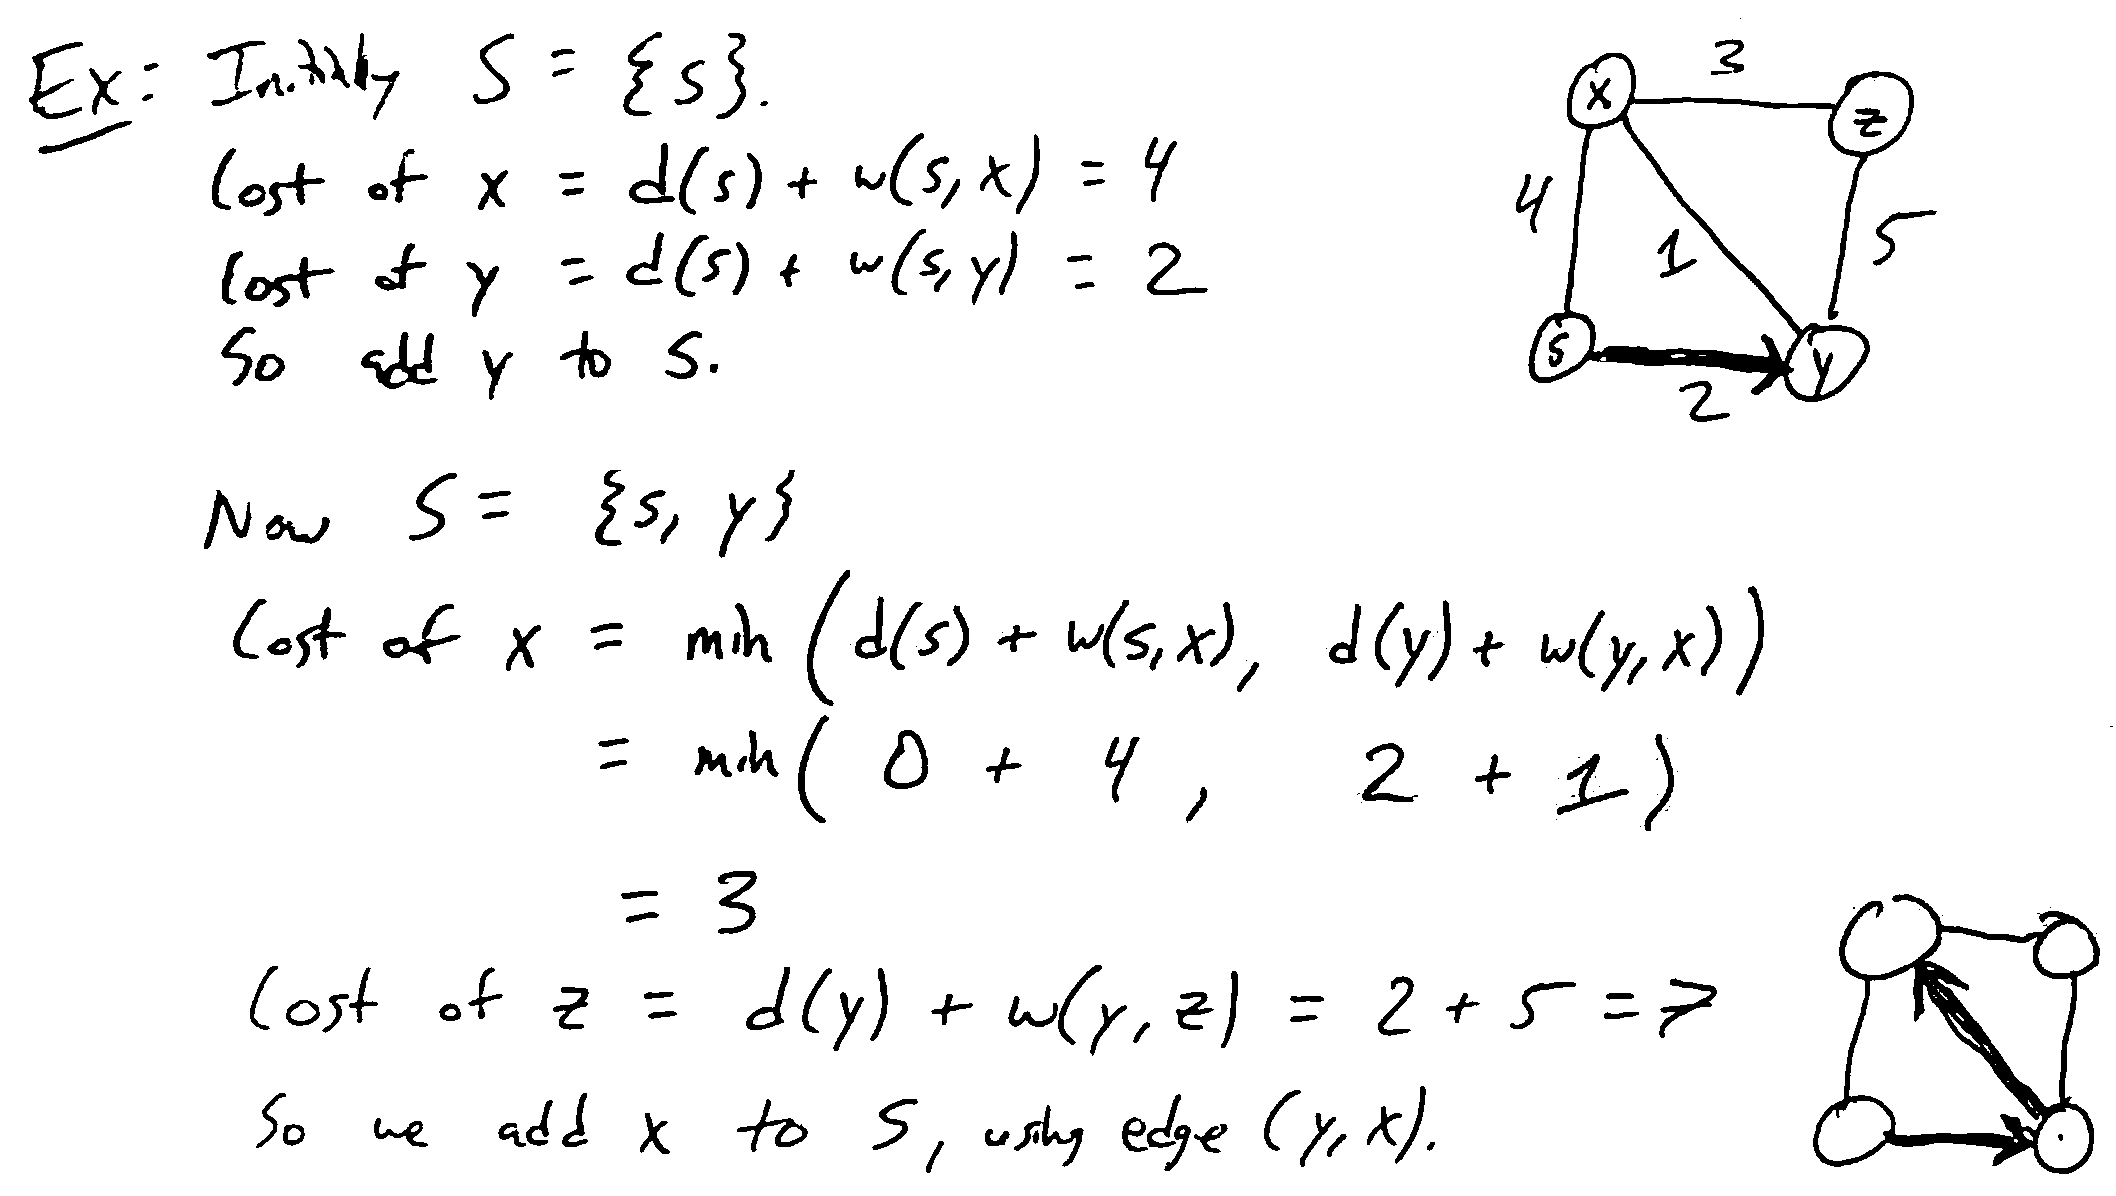 Ex: Initially S = {s}.
Cost of x = d(s) + w(s, x) = 4
Cost of y = d(s) + w(s, y) = 2
So add y to S.
x 3 z
4 1 5
s 2 y
Now S = {s, y}
Cost of x = min (d(s) + w(s, x), d(y) + w(y, x))
= min( 0 + 4 , 2 + 1)
= 3
Cost of z = d(y) + w(y, z) = 2 + 5 = 7
So we add x to S, using edge (y, x).